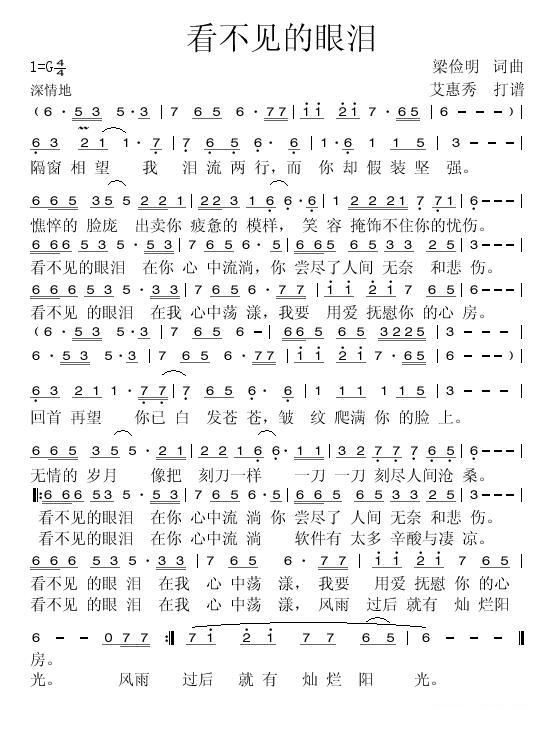 看不见的眼泪
1=G 4/4
梁俭明 词曲
深情地
艾惠秀 打谱
(6· 5 3 5·3 | 7 6 5 6·7 7 | i i 2 i 7·6 5 | 6 - - - )
6 3 2 1 1·7 | 7 6 5 6·6 | 1·6 1 1 5 | 3 - - - |
隔窗相望 我 泪流两行,而 你却假装坚 强。
6 6 5 3 5 5 2 2 1 | 2 2 3 1 6 6·6 | 1 2 2 2 1 7 7 1 | 6 - - - |
憔悴的 脸庞 出卖你 疲惫的 模样, 笑 容 掩饰不住你的忧伤。
6 6 6 5 3 5 3 5·3 | 7 6 5 6·5 | 6 6 5 6 5 3 3 2 5 | 3 - - - |
看不见的眼泪 在你 心 中流淌,你 尝尽了人间 无奈 和悲 伤。
6 6 6 5 3 5 3 5·3 | 7 6 5 6·7 7 | i i 2 i 7 6 5 | 6 - - - |
看不见 的眼泪 在我 心中荡 漾,我要 用爱 抚慰你 的心 房。
(6·5 3 5·3 | 7 6 5 6 - | 6 6 5 6 5 3 2 2 5 | 3 - - - |
6·5 3 5·3 | 7 6 5 6·7 7 | i i 2 i 7·6 5 | 6 - - - )|
6 3 2 1 1·7 7 | 7 6 5 6·6 | 1 1 1 1 5 | 3 - - - |
回首 再望 你已 白 发苍 苍,皱 纹 爬满 你 的脸 上。
6 6 5 3 5 5· | 2 2 1 6 6· | 3 2 7 7 7 6 5 | 6 - - - |
无情的 岁月 像把 刻刀一样 一刀 一刀 刻尽人间沧 桑。
‖:6 6 6 5 3 5 3 5·3 | 7 6 5 6·5 | 6 6 5 6 5 3 3 2 5 | 3 - - - |
看不见的眼泪 在你 心中流 淌 你 尝尽了 人间 无奈 和悲 伤。
看不见的眼泪 在你 心中流 淌 软件有 太多 辛酸与凄 凉。
6 6 6 5 3 5 3 5·3 | 7 6 5 6·7 7 | i i 2 i 7 6 5 |
看不见 的眼 泪 在我 心 中荡 漾, 我要 用爱 抚慰你 的心
看不见 的眼 泪 在我 心 中荡 漾, 风雨 过后 就有 灿 烂阳
6 - - 0 7 7 :‖ 7 i 2 i 7 7 6 5 | 6 - - - |
房。
光。 风雨 过后 就 有 灿 烂 阳 光。